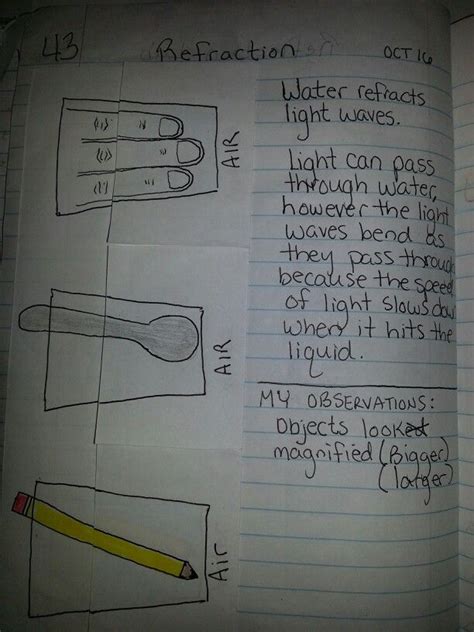 43 Refraction OCT 16
AIR
AIR
Air
Water refracts
light waves.
Light can pass
through water,
however the light
waves bend as
they pass through
because the speed
of light slows down
when it hits the
liquid.
MY OBSERVATIONS:
Objects look
magnified (Bigger)
(larger)